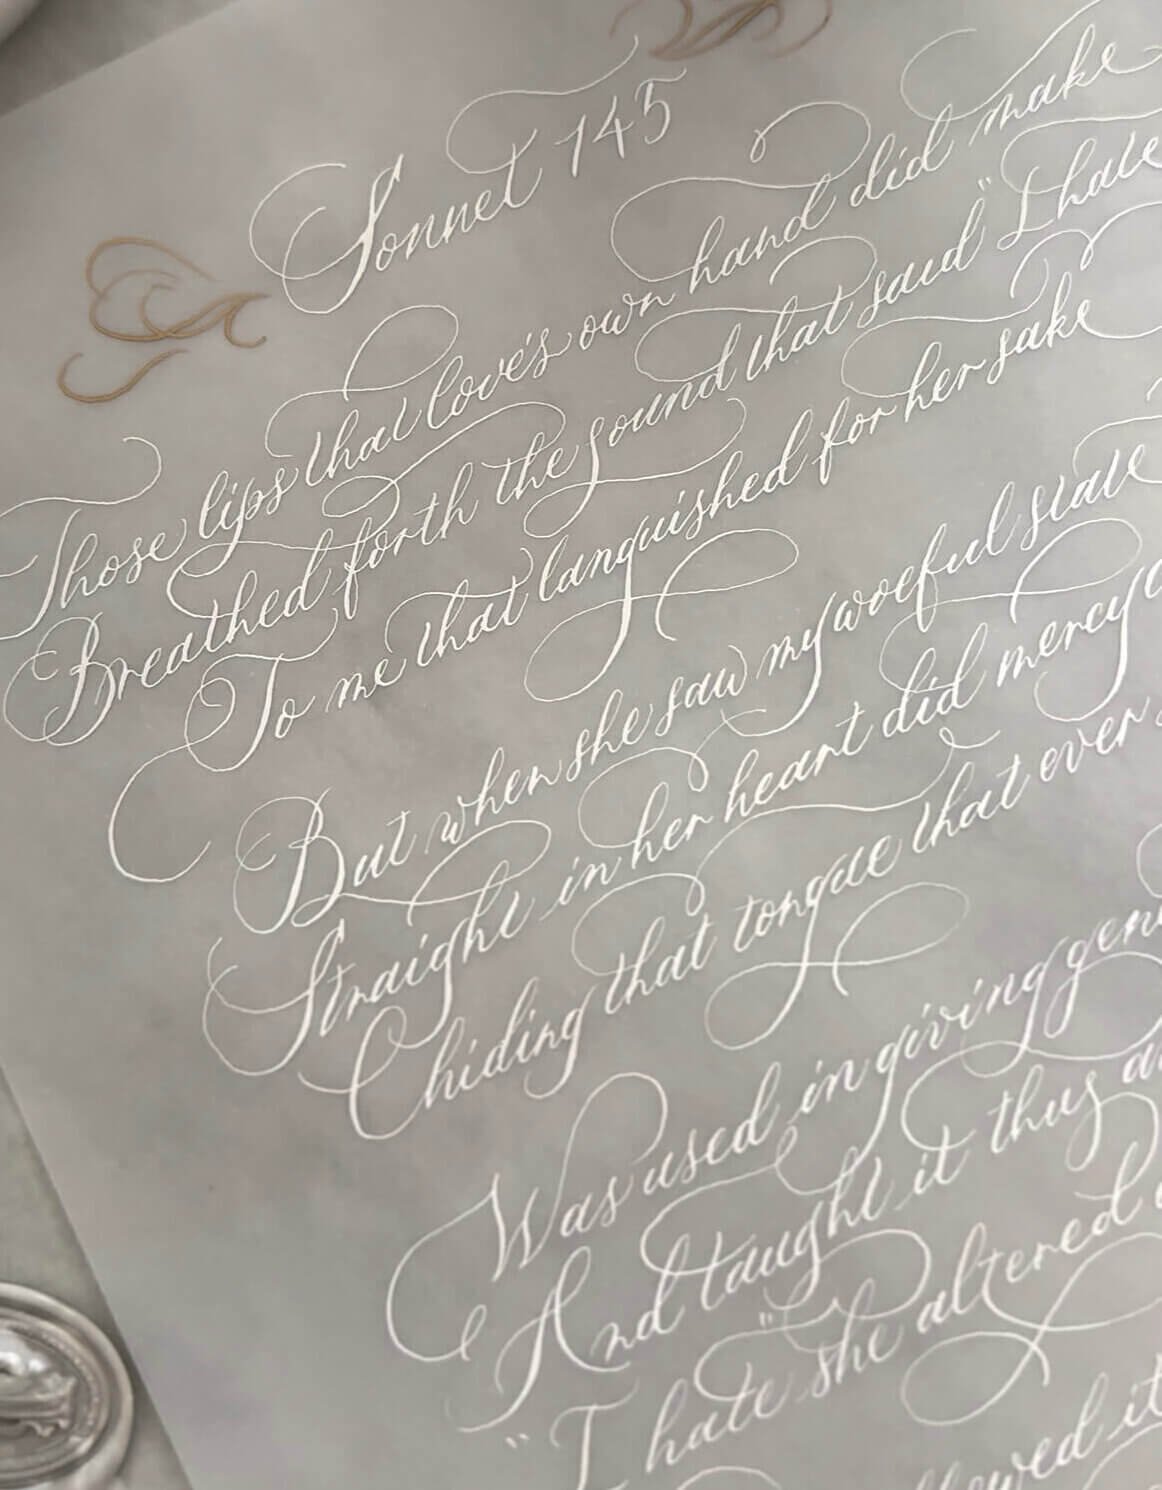 Sonnet 145
Those lips that love's own hand did make
Breathed forth the sound that said "I hate
To me that languished for her sake
But when she saw my woeful state
Straight in her heart did mercy
Chiding that tongue that ever
Was used in giving
And taught it thus
"I hate" she altered
it